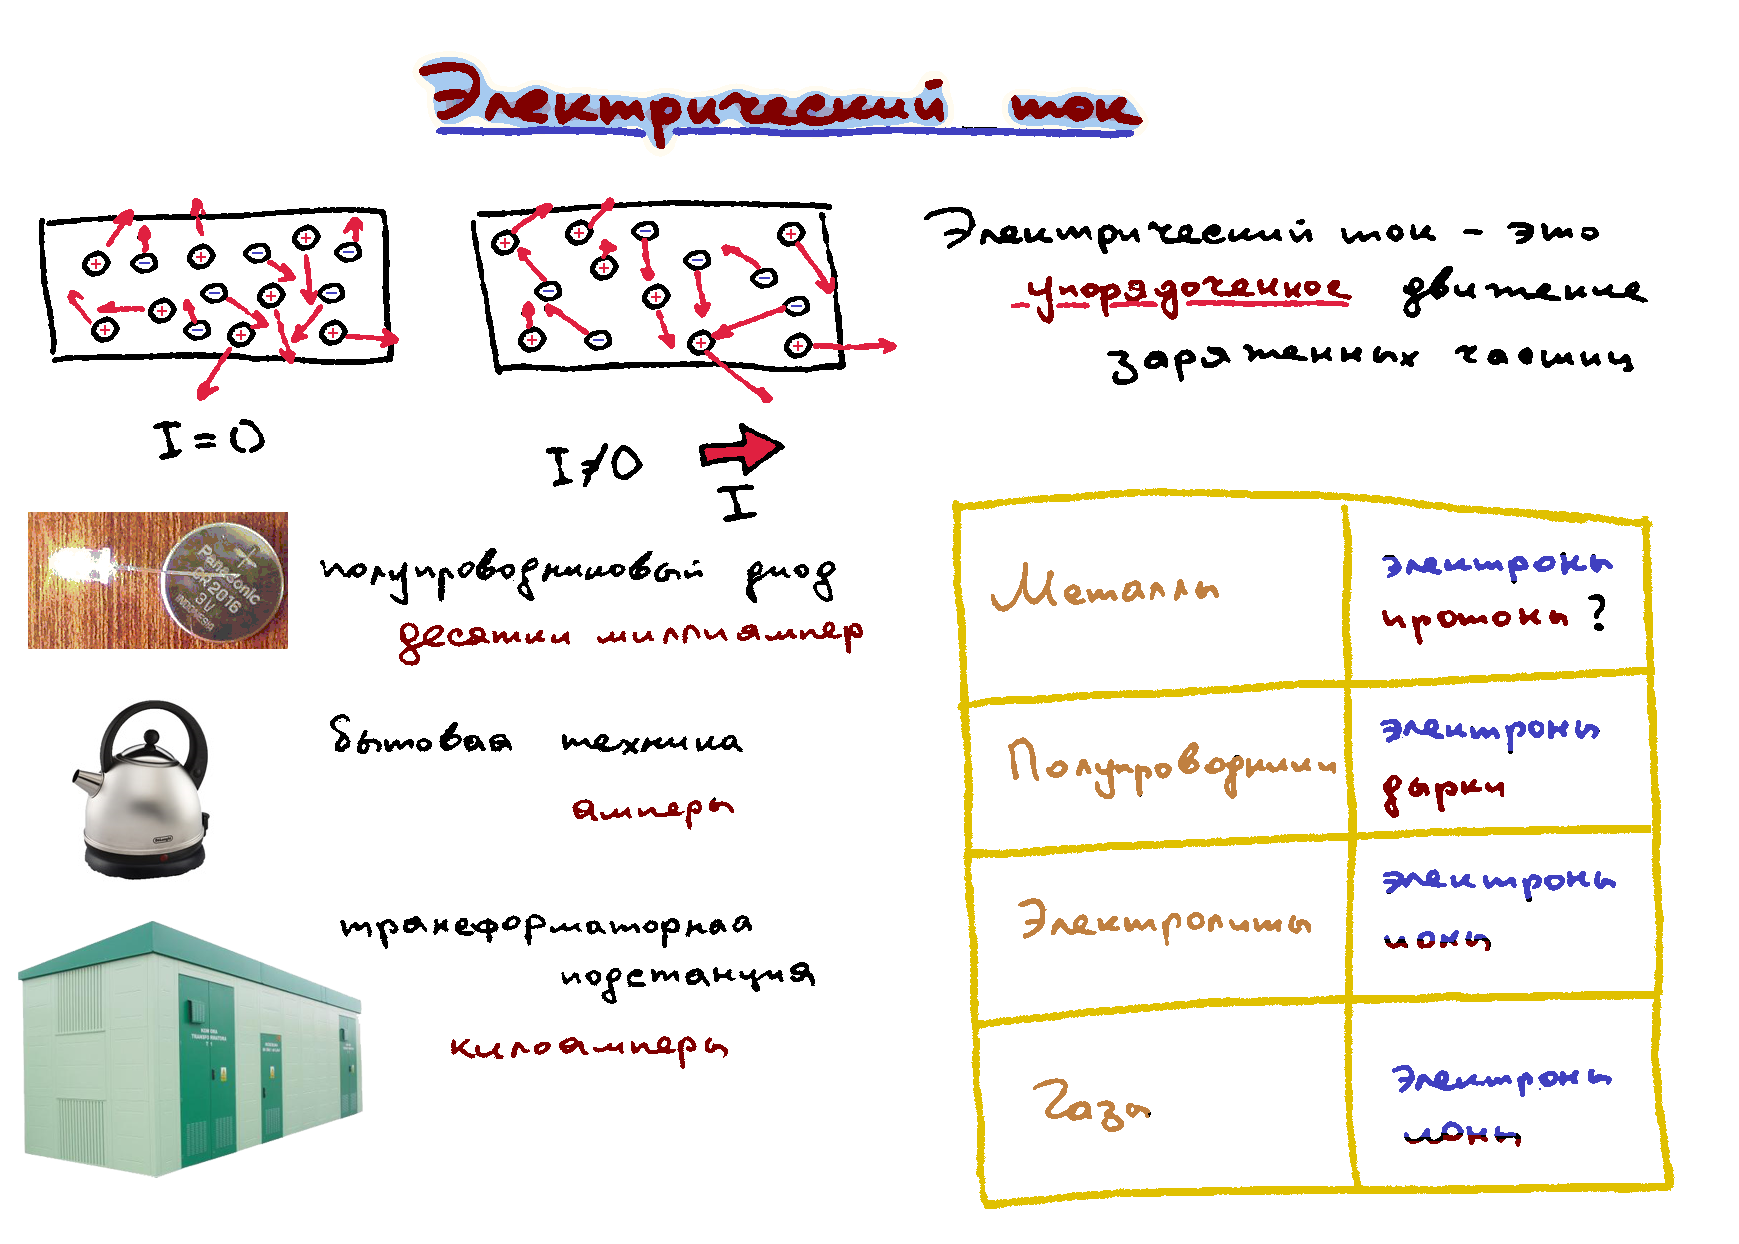 Электрический ток
Электрический ток - это
упорядоченное движение
заряженных частиц
I = 0
I ≠ 0
I
Panasonic
CR2016
3V
INDONESIA
полупроводниковый диод
десятки миллиампер
бытовая техника
амперы
DeLonghi
трансформаторная
подстанция
килоамперы
Металлы
электроны
протоны ?
Полупроводники
электроны
дырки
Электролиты
электроны
ионы
Газы
электроны
ионы